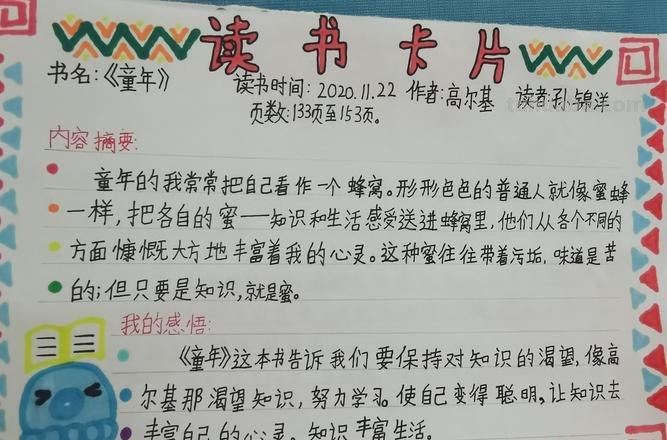 读书卡片
书名:《童年》 读书时间: 2020.11.22 作者:高尔基 读者:孙锦洋
页数:133页至153页。
内容摘要:
童年的我常常把自己看作一个蜂窝。形形色色的普通人就像蜜蜂
一样,把各自的蜜——知识和生活感受送进蜂窝里,他们从各个不同的
方面慷慨大方地丰富着我的心灵。这种蜜往往带着污垢,味道是苦
的;但只要是知识,就是蜜。
我的感悟:
《童年》这本书告诉我们要保持对知识的渴望,像高
尔基那渴望知识,努力学习。使自己变得聪明,让知识去
丰富自己的心灵。知识丰富生活。